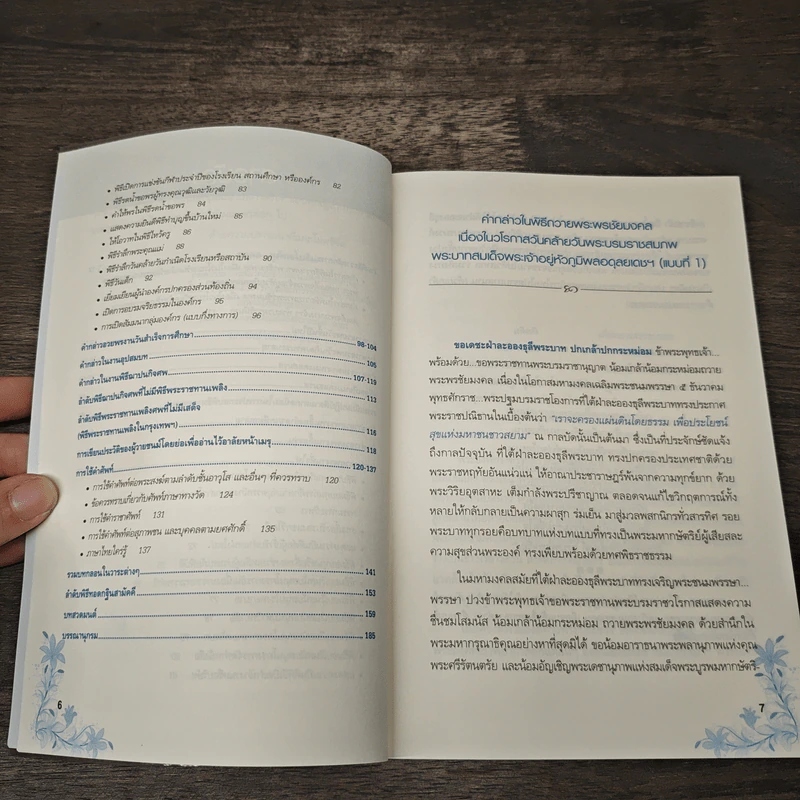 • พิธีเปิดการแข่งขันกีฬาประจำปีของโรงเรียน สถานศึกษา หรือองค์กร 82
• พิธีรดน้ำขอพรผู้ทรงคุณวุฒิและวัยวุฒิ 83
• คำให้พรในพิธีรดน้ำขอพร 84
• แสดงความยินดีพิธีทำบุญขึ้นบ้านใหม่ 85
• ให้โอวาทในพิธีไหว้ครู 86
• พิธีรำลึกพระคุณแม่ 88
• พิธีรำลึกวันคล้ายวันกำเนิดโรงเรียนหรือสถาบัน 90
• พิธีวันเด็ก 92
• เยี่ยมเยียนผู้นำองค์กรปกครองส่วนท้องถิ่น 94
• เปิดการอบรมจริยธรรมในองค์กร 95
• การเปิดสัมมนากลุ่มองค์กร (แบบกึ่งทางการ) 96
คำกล่าวอวยพรงานวันสำเร็จการศึกษา 98-104
คำกล่าวในงานอุปสมบท 105
คำกล่าวในงานพิธีฌาปนกิจศพ 107-119
ลำดับพิธีฌาปนกิจศพที่ไม่มีพิธีพระราชทานเพลิง 113
ลำดับพิธีพระราชทานเพลิงศพที่ไม่มีเสด็จ
(พิธีพระราชทานเพลิงในกรุงเทพฯ) 116
การเขียนประวัติของผู้วายชนม์โดยย่อเพื่ออ่านไว้อาลัยหน้าเมรุ 118
การใช้คำศัพท์ 120-137
• การใช้คำศัพท์ต่อพระสงฆ์ตามลำดับชั้นอาวุโส และอื่นๆ ที่ควรทราบ 120
• ข้อควรทราบเกี่ยวกับศัพท์ภาษาทางวัด 124
• การใช้คำราชาศัพท์ 131
• การใช้คำศัพท์ต่อสุภาพชน และบุคคลตามยศศักดิ์ 135
• ภาษาไทยใคร่รู้ 137
รวมบทกลอนในวาระต่างๆ 141
ลำดับพิธีทอดกฐินสามัคคี 153
บทสวดมนต์ 159
บรรณานุกรม 185
6
คำกล่าวในพิธีถวายพระพรชัยมงคล
เนื่องในวโรกาสวันคล้ายวันพระบรมราชสมภพ
พระบาทสมเด็จพระเจ้าอยู่หัวภูมิพลอดุลยเดชฯ (แบบที่ 1)
ขอเดชะฝ่าละอองธุลีพระบาท ปกเกล้าปกกระหม่อม ข้าพระพุทธเจ้า...
พร้อมด้วย...ขอพระราชทานพระบรมราชานุญาต น้อมเกล้าน้อมกระหม่อมถวาย
พระพรชัยมงคล เนื่องในโอกาสมหามงคลเฉลิมพระชนมพรรษา ๕ ธันวาคม
พุทธศักราช...พระปฐมบรมราชโองการที่ใต้ฝ่าละอองธุลีพระบาททรงประกาศ
พระราชปณิธานในเบื้องต้นว่า "เราจะครองแผ่นดินโดยธรรม เพื่อประโยชน์
สุขแห่งมหาชนชาวสยาม" ณ กาลบัดนั้นเป็นต้นมา ซึ่งเป็นที่ประจักษ์ชัดแจ้ง
ถึงกาลปัจจุบัน ที่ใต้ฝ่าละอองธุลีพระบาท ทรงปกครองประเทศชาติด้วย
พระราชหฤทัยอันแน่วแน่ ให้อาณาประชาราษฎร์พ้นจากความทุกข์ยาก ด้วย
พระวิริยอุตสาหะ เต็มกำลังพระปรีชาญาณ ตลอดจนแก้ไขวิกฤตการณ์ทั้ง
หลายให้กลับกลายเป็นความผาสุก ร่มเย็น มาสู่มวลพสกนิกรทั่วสารทิศ รอย
พระบาททุกรอยคือบทบาทแห่งบทแบบที่ทรงเป็นพระมหากษัตริย์ผู้เสียสละ
ความสุขส่วนพระองค์ ทรงเพียบพร้อมด้วยทศพิธราชธรรม
ในมหามงคลสมัยที่ใต้ฝ่าละอองธุลีพระบาททรงเจริญพระชนมพรรษา...
พรรษา ปวงข้าพระพุทธเจ้าขอพระราชทานพระบรมราชวโรกาสแสดงความ
ชื่นชมโสมนัส น้อมเกล้าน้อมกระหม่อม ถวายพระพรชัยมงคล ด้วยสำนึกใน
พระมหากรุณาธิคุณอย่างหาที่สุดมิได้ ขอน้อมอาราธนาพระพลานุภาพแห่งคุณ
พระศรีรัตนตรัย และน้อมอัญเชิญพระเดชานุภาพแห่งสมเด็จพระบูรพมหากษัตริ
7